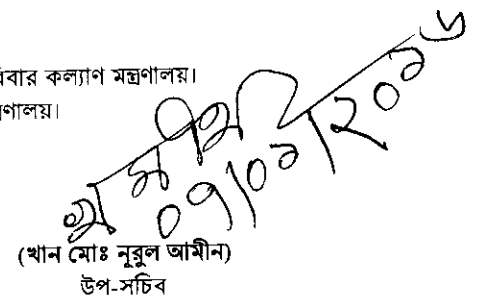 বার কল্যাণ মন্ত্রণালয়।
ণালয়।
০৭/০১/২০১৬
(খান মোঃ নূরুল আমীন)
উপ-সচিব